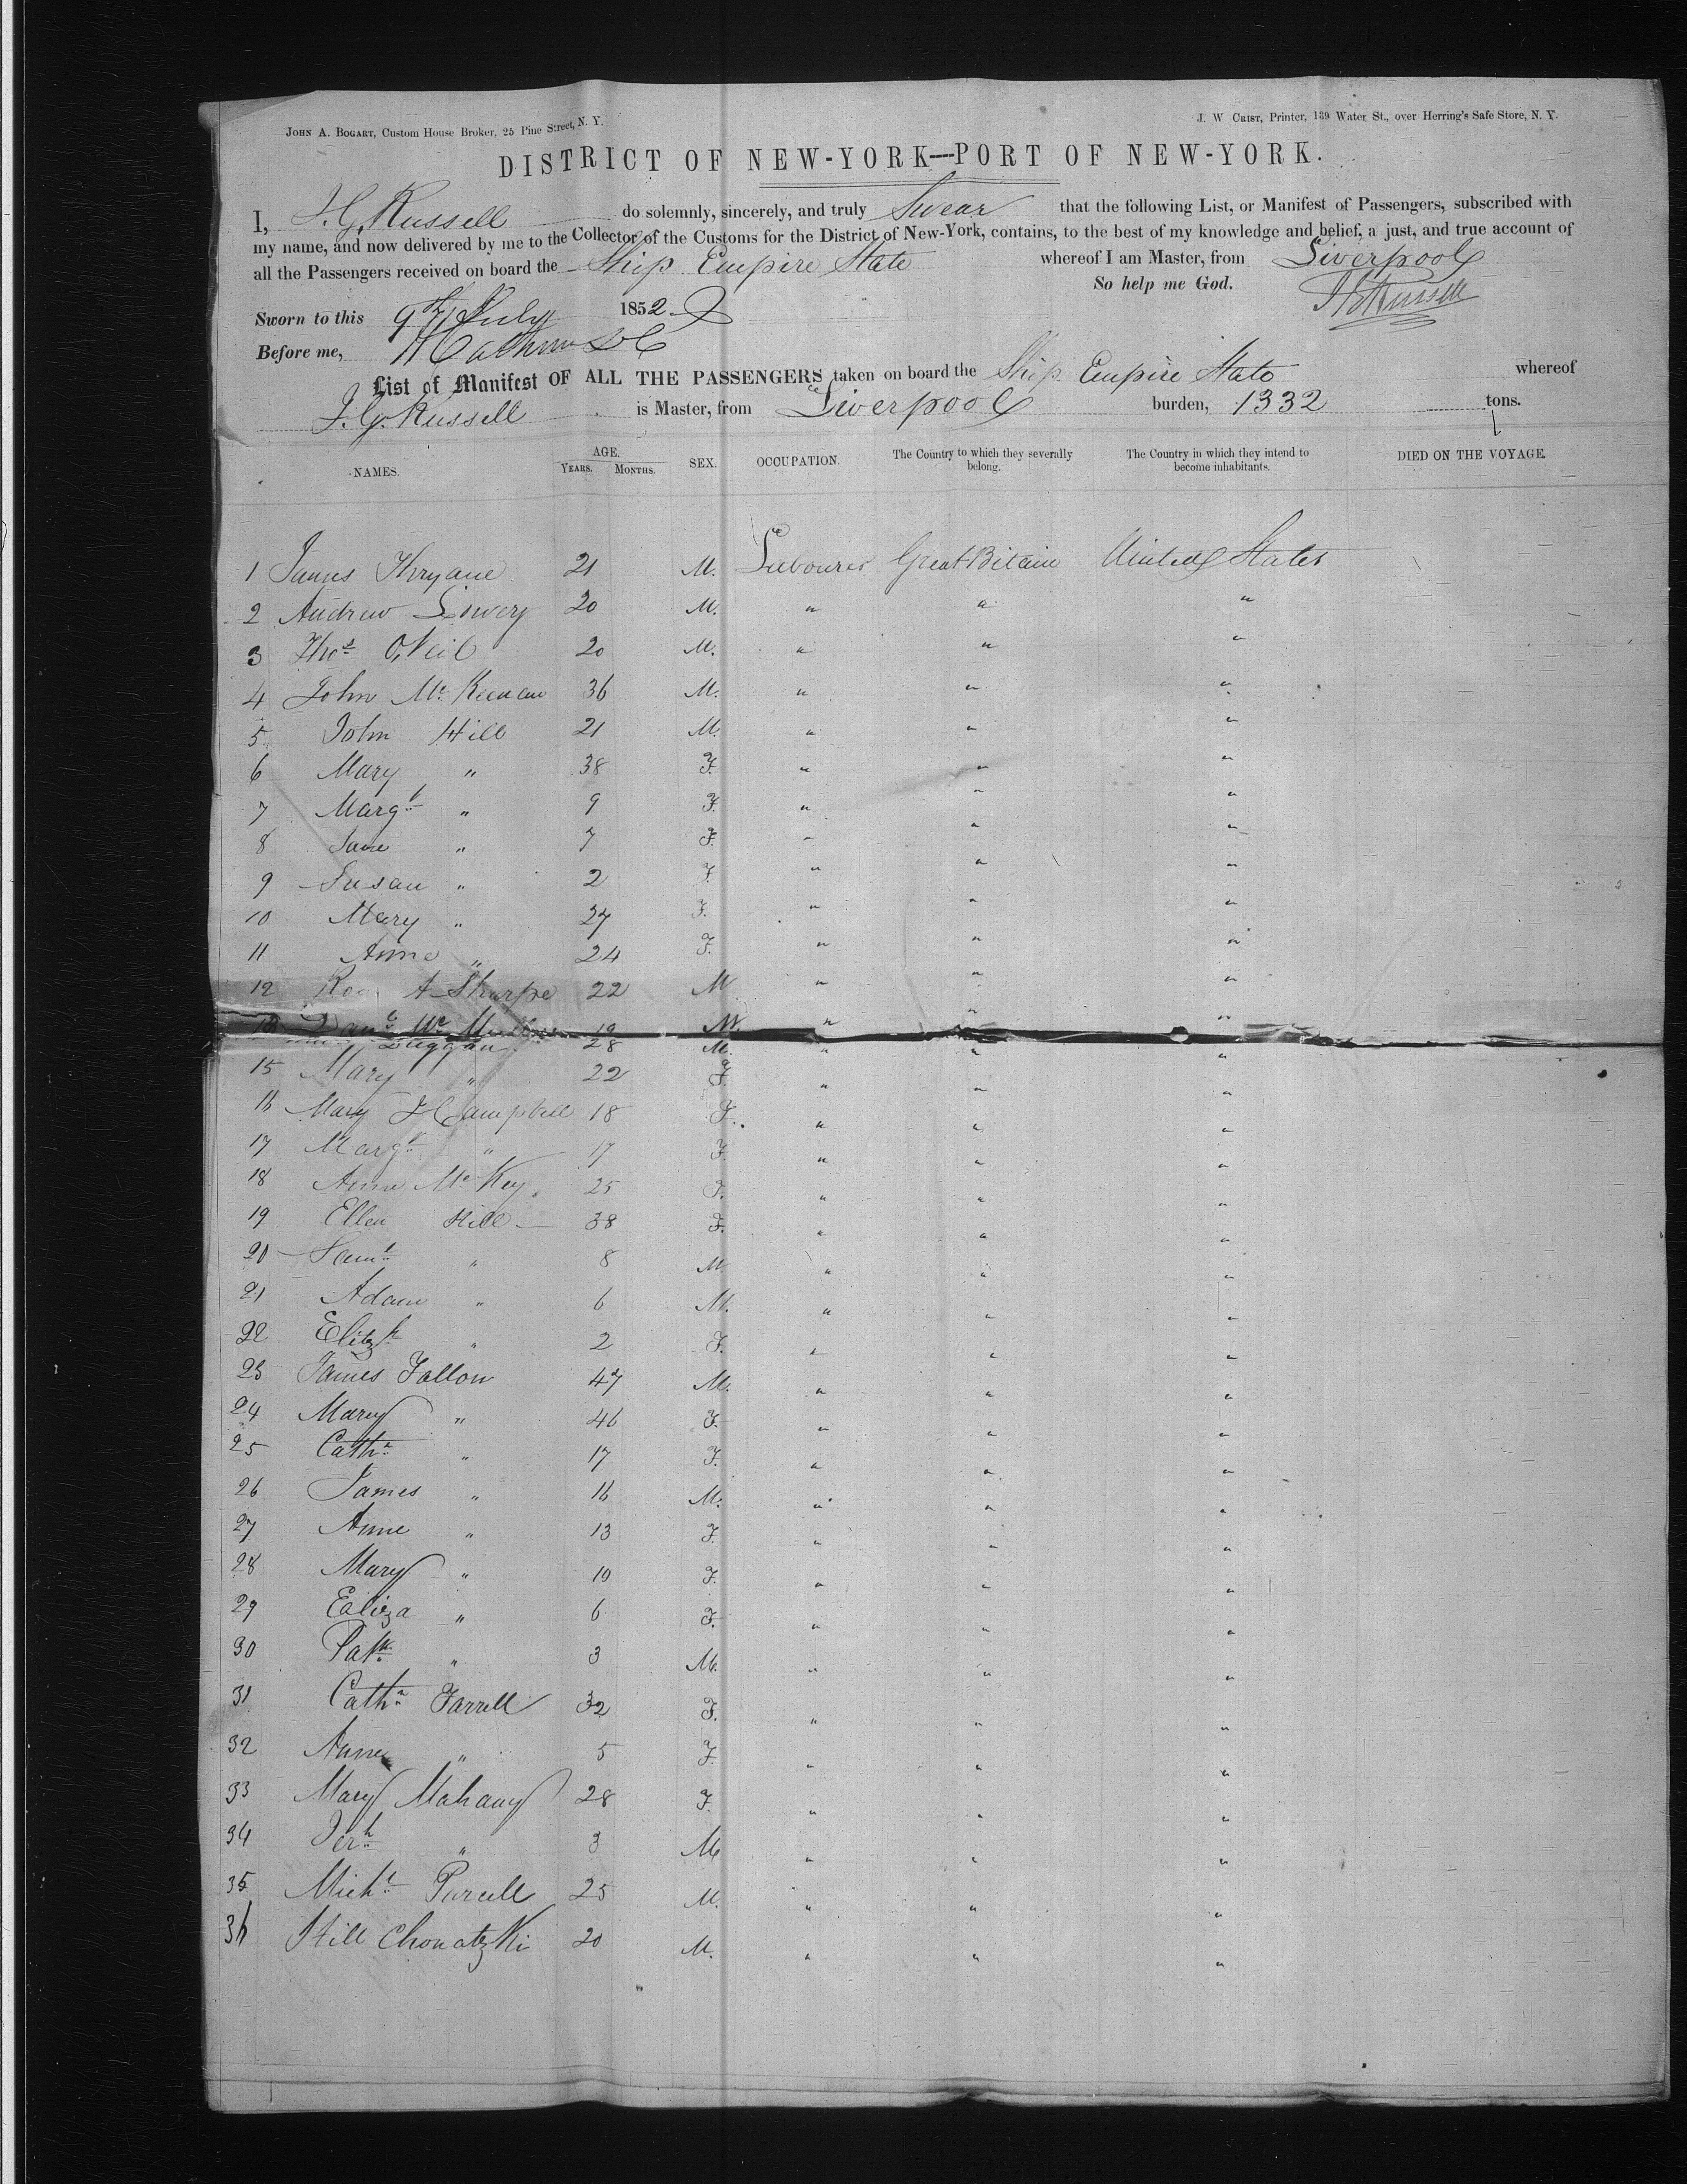 JOHN A. BOGART, Custom House Broker, 25 Pine Street, N. Y.
J. W CRIST, Printer, 139 Water St., over Herring's Safe Store, N. Y.
DISTRICT OF NEW-YORK—PORT OF NEW-YORK.
I, J. G. Russell do solemnly, sincerely, and truly Swear that the following List, or Manifest of Passengers, subscribed with
my name, and now delivered by me to the Collector of the Customs for the District of New-York, contains, to the best of my knowledge and belief, a just, and true account of
all the Passengers received on board the Ship Empire State whereof I am Master, from Liverpool
So help me God.
Sworn to this 9th July 1852
J G Russell
Before me,
List of Manifest OF ALL THE PASSENGERS taken on board the Ship Empire State whereof
J. G. Russell is Master, from Liverpool burden, 1332 tons.
NAMES. AGE. YEARS. MONTHS. SEX. OCCUPATION. The Country to which they severally belong. The Country in which they intend to become inhabitants. DIED ON THE VOYAGE.
1 James 21 M. Labourer Great Bitain United States
2 Andrew Lowery 20 M. " " "
3 Thos O'Neil 20 M. " " "
4 John Mc Keenan 36 M. " " "
5 John Hill 21 M. " " "
6 Mary " 38 F. " " "
7 Margt " 9 F. " " "
8 Jane " 7 F. " " "
9 Susan " 2 F. " " "
10 Mary " 27 F. " " "
11 Anne " 24 F. " " "
12 A Sharpe 22 M " " "
13 Danl Mc 19 M " " "
Duggan 28 M. " " "
15 Mary " 22 F. " " "
16 Mary J Campbell 18 F. " " "
17 Margt " 17 F. " " "
18 Anne Mc Key 25 F. " " "
19 Ellen Hill 38 F. " " "
20 Saml " 8 M. " " "
21 Adam " 6 M. " " "
22 Elizth " 2 F. " " "
23 James Fallon 47 M. " " "
24 Mary " 46 F. " " "
25 Cathn " 17 F. " " "
26 James " 16 M. " " "
27 Anne " 13 F. " " "
28 Mary " 10 F. " " "
29 Ealiza " 6 F. " " "
30 Patk " 3 M. " " "
31 Cathn Farrell 32 F. " " "
32 Anne " 5 F. " " "
33 Mary Mahany 28 F. " " "
34 Jerh " 3 M " " "
35 Michl Purcell 25 M. " " "
36 Hill Chonatzki 20 M. " " "